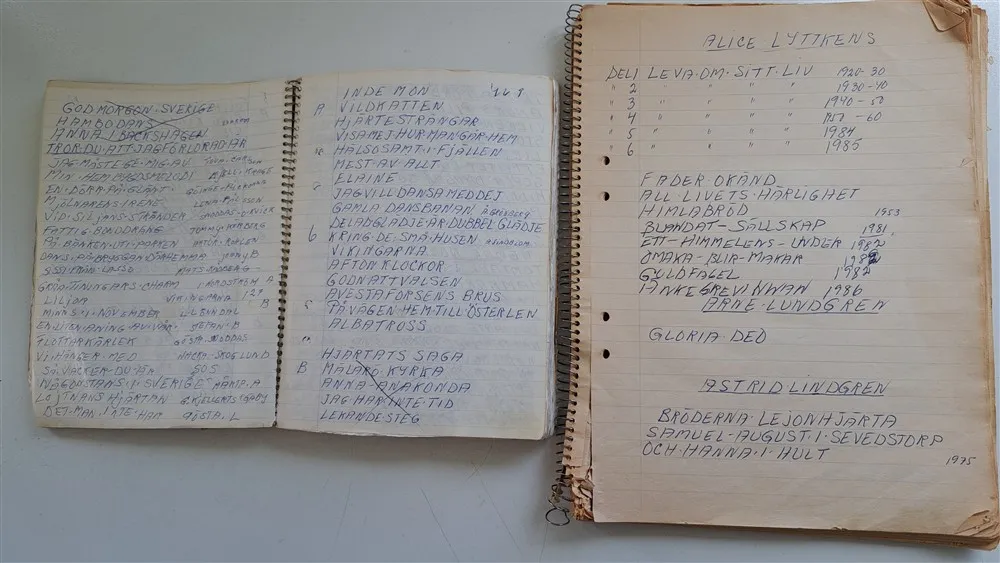 GODMORGON·SVERIGE
HAMBODANS
ANNA·I·BACKSHAGEN
TROR·DU·ATT·JAG·FÖRLORAD·ÄR
JAG·MÅSTE·GE·MIG·AV
MIN·HEMBYGDSMELODI
EN·DÖRR·PÅ·GLÄNT
MJÖLNARENS·IRENE
VID·SILJANS·STRÄNDER
FATTIG·BONDDRÄNG
PÅ·BÄNKEN·UTI·PARKEN
DANS·PÅ·BRYGGAN·DÄRHEMMA JONNY B
GRÖNA
LILJOR VIKINGARNA 129
MINNS·I·NOVEMBER B
EN·LITEN·ANING·AV·VÅR STEFAN·B
FLOTTARKÄRLEK GÖSTA
VI·HÄNGER·MED NACKA·SKOGLUND
SÅ·VACKER·DU·ÄR SOS
NÅGONSTANS·I·SVERIGE
LÖJTNANSHJÄRTAN
DET·MAN·INTE·HAR GÖSTA·L
INDE MON 161
A VILDKATTEN
HJÄRTESTRÄNGAR
VISA MEJ HUR MAN GÅR HEM
HÄLSOSAMT·I·FJÄLLEN
MEST·AV·ALLT
ELAINE
JAG VILL DANSA MED DEJ
GAMLA DANSBANAN
DELAD GLÄDJE ÄR DUBBEL GLÄDJE
KRING·DE·SMÅ·HUSEN
VIKINGARNA
AFTONKLOCKOR
GODNATTVALSEN
AVESTAFORSENS BRUS
PÅ VÄGEN HEM TILL ÖSTERLEN
ALBATROSS
HJÄRTATS SAGA
B MÄLARÖ·KYRKA
ANNA·ANAKONDA
JAG·HAR·INTE·TID
LEKANDE·STEG
ALICE LYTTKENS
DEL 1 LEVA·OM·SITT·LIV 1920-30
" 2 " " " " 1930-40
" 3 " " " " 1940-50
" 4 " " " " 1950-60
" 5 " " " " 1984
" 6 " " " " 1985
FADER OKÄND
ALL·LIVETS·HÄRLIGHET
HIMLABRÖD 1953
BLANDAT-SÄLLSKAP 1981
ETT-HIMMELENS-UNDER 1982
OMAKA-BLIR-MAKAR 1982
GULDFÅGEL 1982
ÄNKEGREVINNAN 1986
ARNE·LUNDGREN
GLORIA DEO
ASTRID·LINDGREN
BRÖDERNA·LEJONHJÄRTA
SAMUEL-AUGUST·I·SEVEDSTORP
OCH·HANNA·I·HULT 1975